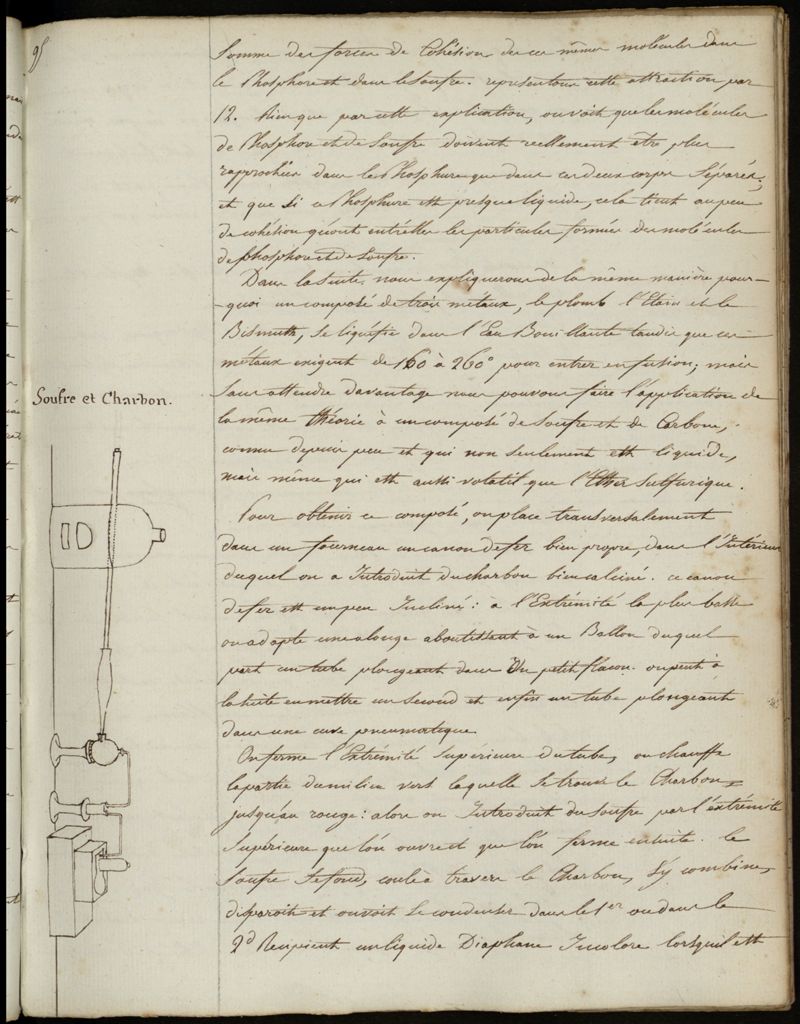 95
Somme des forces de Cohésion de ces mêmes molécules dans
le Phosphore et dans le Soufre. representons cette attraction par
12. Rien que par cette explication, on voit que les molécules
de Phosphore et de Soufre doivent reellement etre plus
rapprochées dans le Phosphure que dans ces deux corps Séparés;
et que Si ce Phosphure est presque liquide, cela tient au peu
de cohésion qu'ont entr'elles les particules formées des molécules
de phosphore et de Soufre.
Dans la Suite, nous expliquerons de la même manière pour-
-quoi un composé de trois métaux, le plomb l'Etain et le
Bismuth, Se liquéfie dans l'Eau Bouillante tandis que ces
métaux exigent de 160 à 260° pour entrer en fusion; mais
Sans attendre davantage nous pouvons faire l'application de
la même théorie à un composé de Soufre et de Carbone,
connu depuis peu et qui non Seulement est liquide,
mais même qui est aussi volatil que l'Ether Sulfurique.
Soufre et Charbon.
Pour obtenir ce composé, on place transversalement
dans un fourneau un canon de fer bien propre, dans l'Intérieur
duquel on a Introduit du charbon bien calciné. ce canon
de fer est un peu Incliné: à l'Extrémité la plus basse
on adapte une alonge aboutissant à un Ballon duquel
part un tube plongeant dans Un petit flacon. on peut à
la Suite en mettre un Second et enfin un tube plongeant
dans une cuve pneumatique.
On ferme l'Extrémité Supérieure du tube, on chauffe
la partie du milieu vers laquelle Se trouve le Charbon,
jusqu'au rouge: alors on Introduit du Soufre par l'extrémité
Supérieure que l'on ouvre et que l'on ferme ensuite. le
Soufre Se fond, coule à travers le Charbon, S'y combine,
disparoit et on voit Se condenser dans le 1er ou dans le
2d Recipient un liquide Diaphane Incolore lorsqu'il est